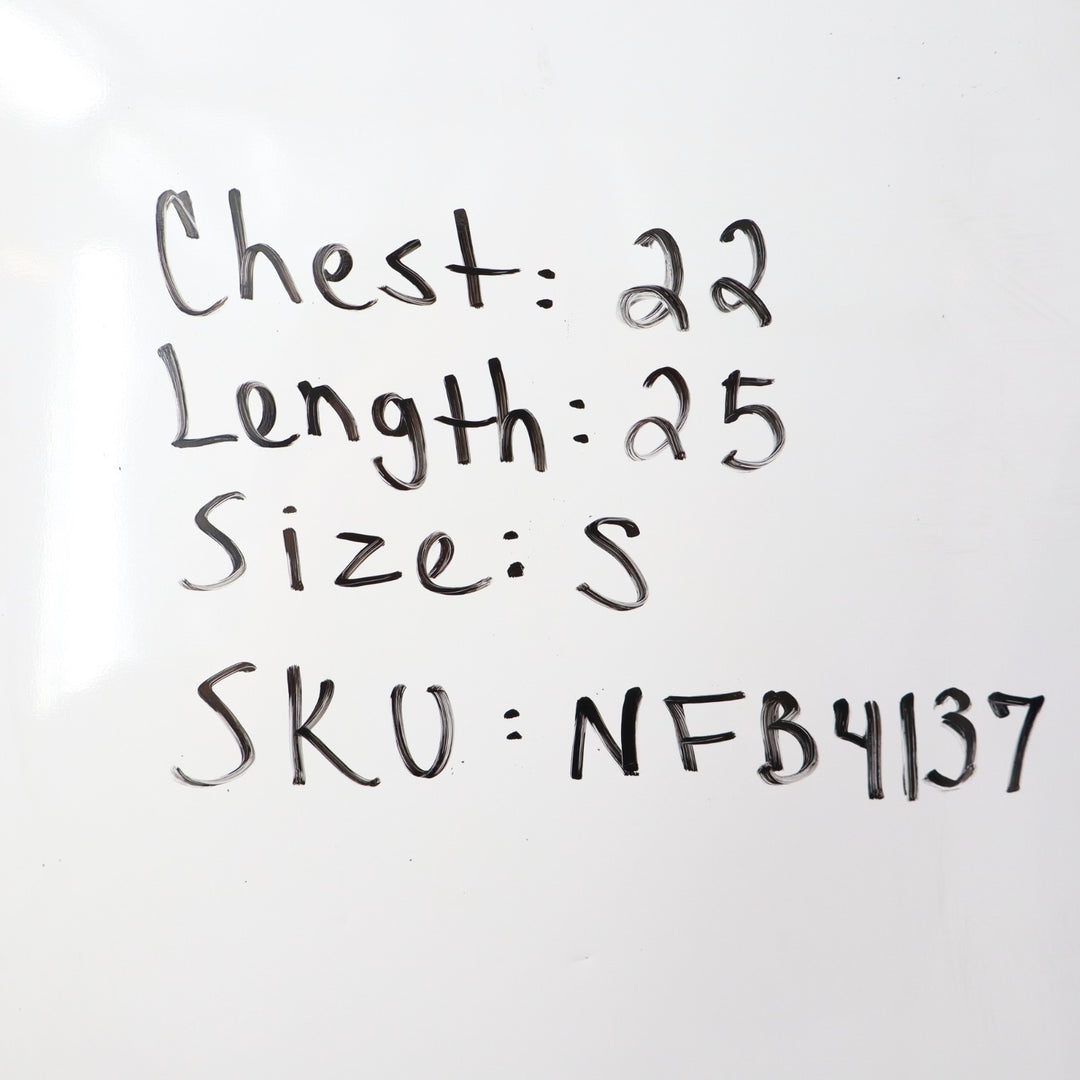 Chest: 22
Length: 25
Size: S
SKU: NFB4137